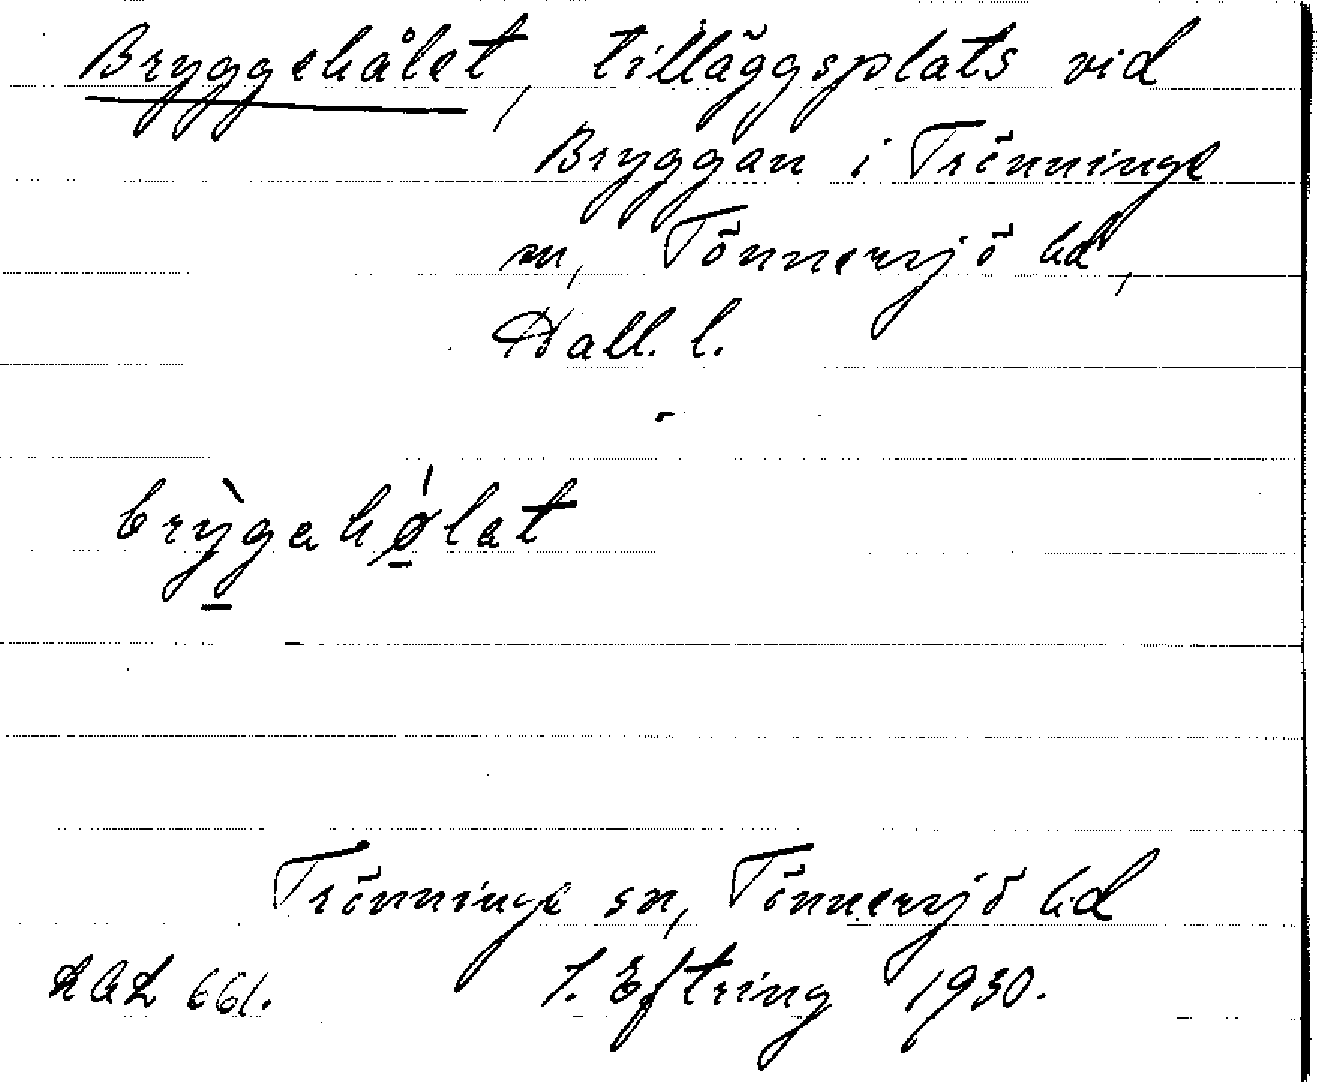 Bryggehålet, tilläggsplats vid
Bryggan i Trönninge
sn, Tönnersjö hd,
Hall. l.
brỳgahǿlat
Trönninge sn, Tönnersjö hd
LAL 661. J. Eftring 1930.